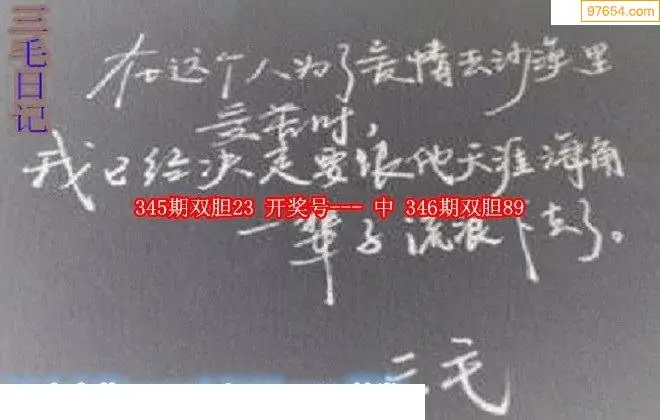 97654.com
三毛日记
在这个人为了爱情去沙漠里
受苦时,
我已经决定要跟他天涯海角
345期双胆23 开奖号--- 中 346期双胆89
一辈子流浪下去了。
三毛